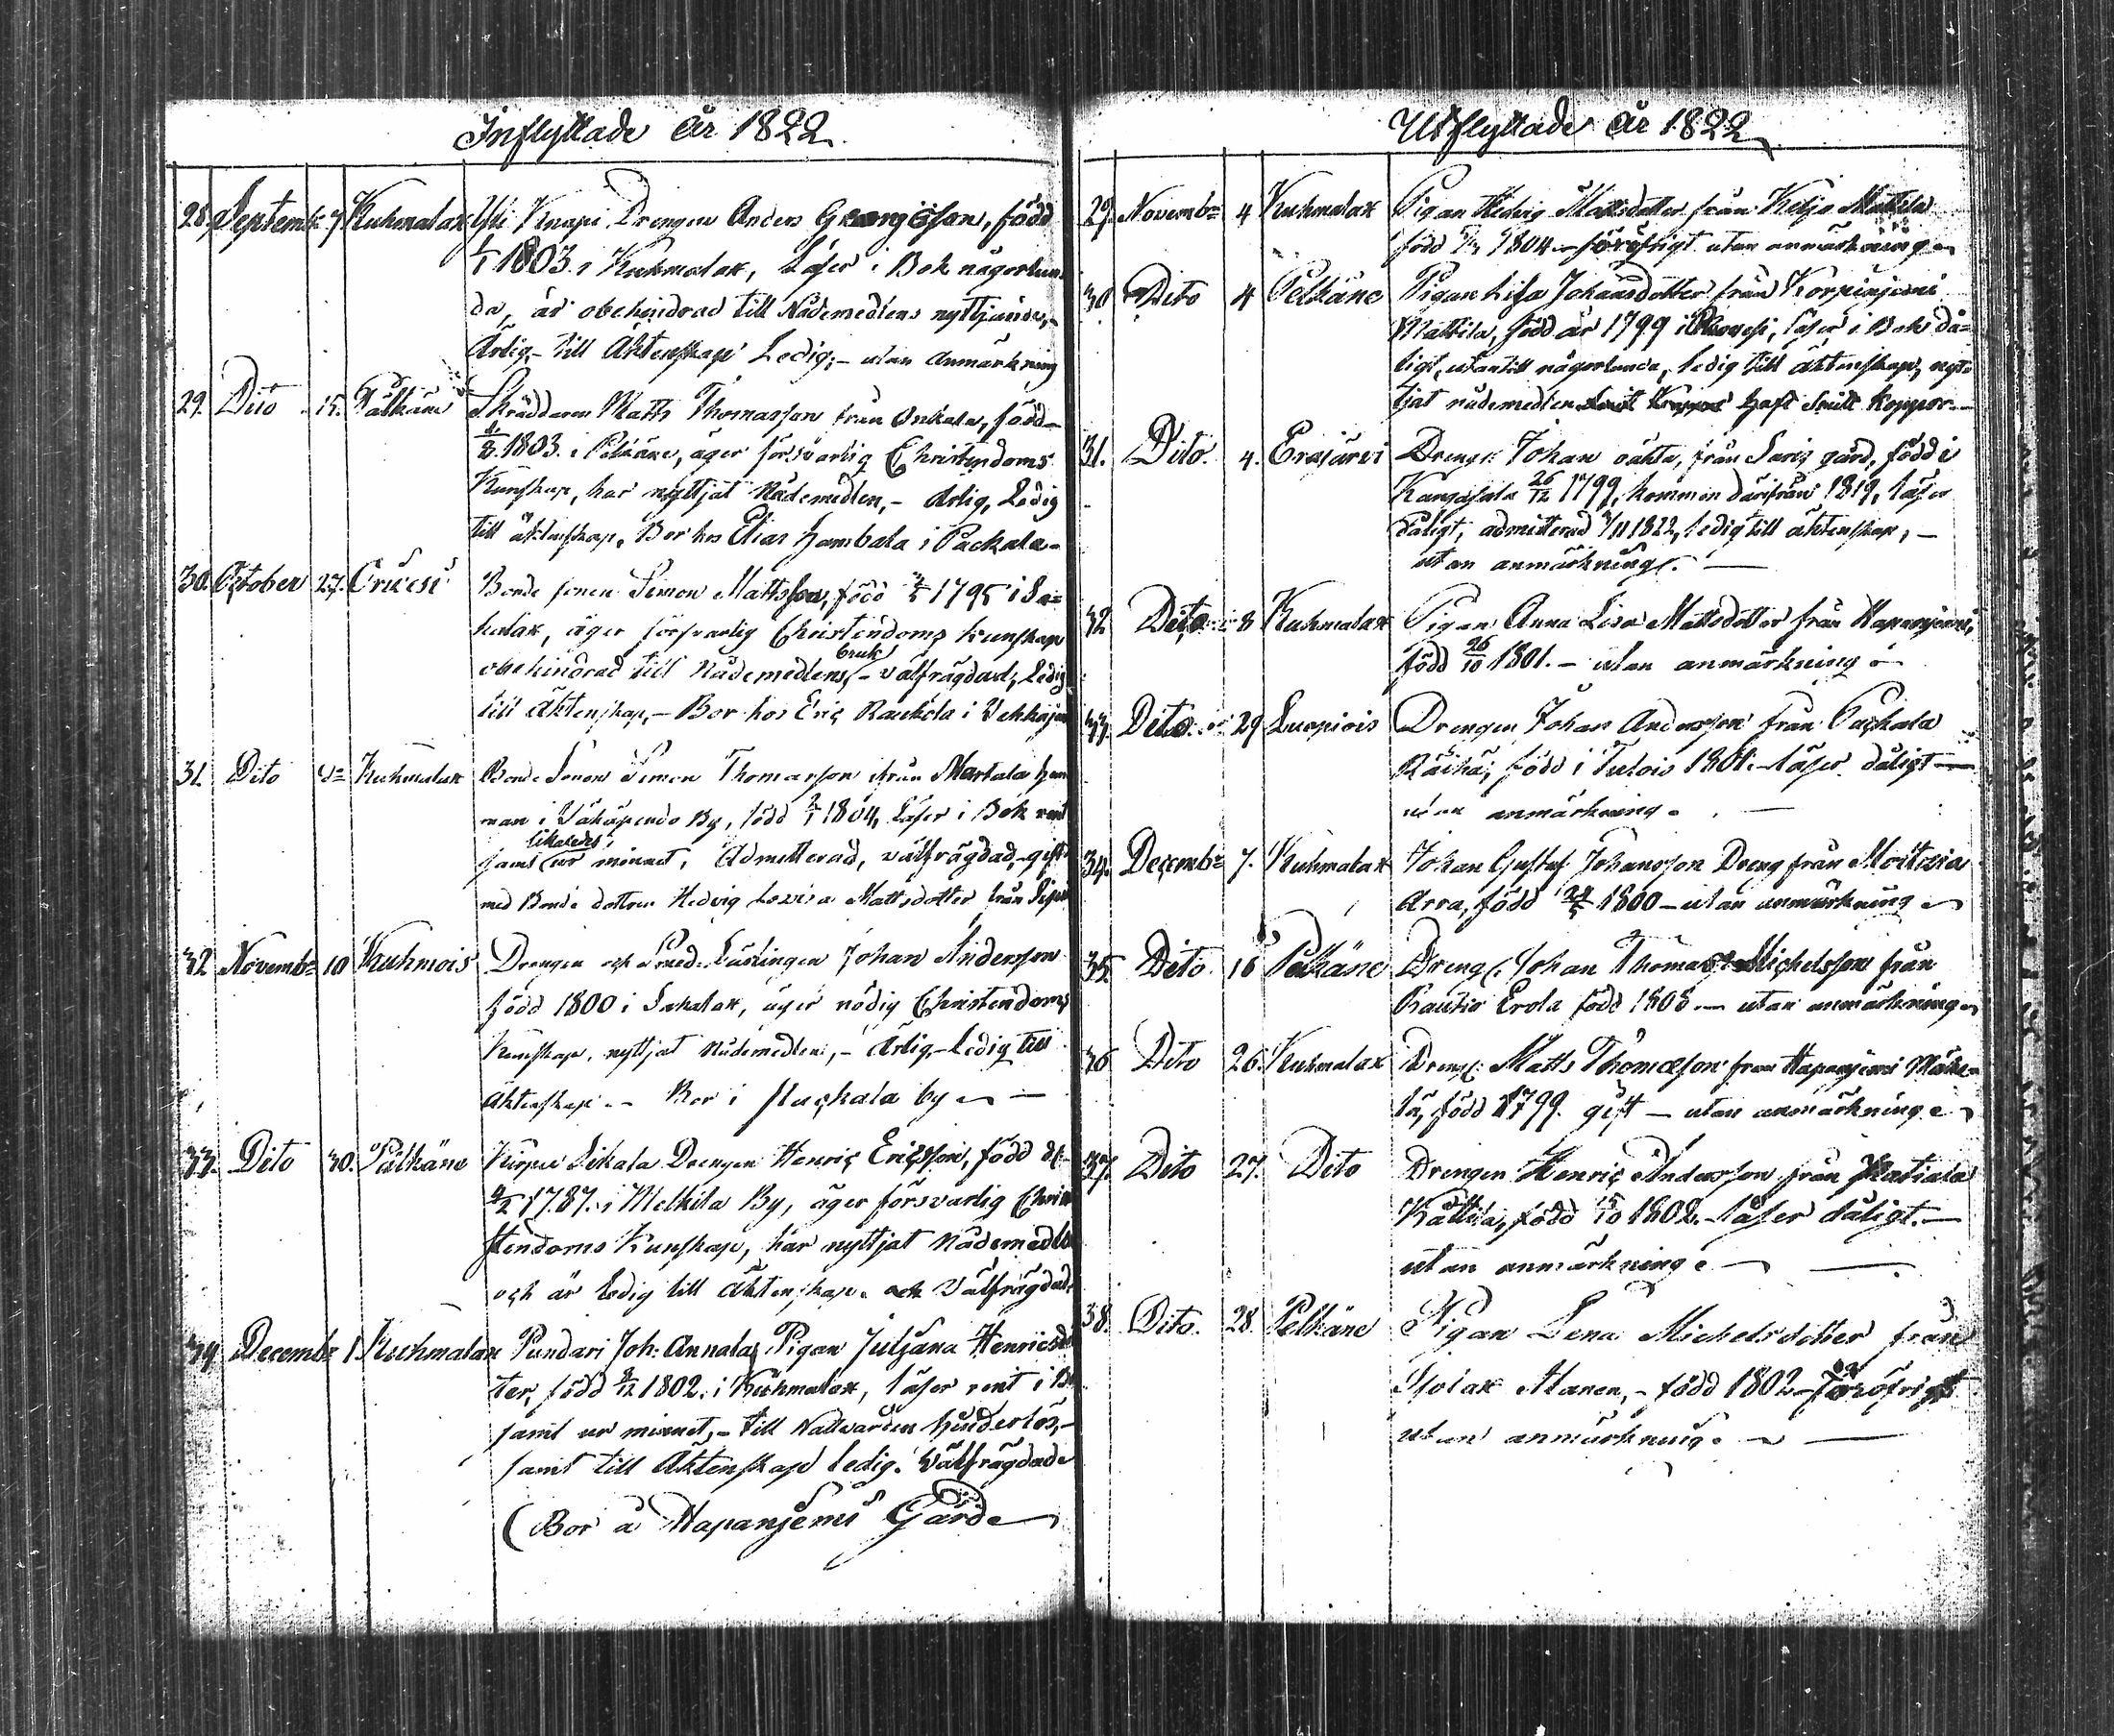 Inflyttade År 1822.
28. Septemb: 7 Kuhmalax Knapi Drengen Anders Georgsson, född
1803. i Kuhmalax, Läser i Bok någorlun
da, är obehindrad till Nådemedlens nyttjande,-
Ärlig,- till Äktenskap Ledig;- utan Anmärkning
29. Dito 15. Pälkäne Skräddaren Matts Thomasson från Onkala, född
1803. i Pälkäne, äger försvarlig Christendoms
Kunskap, har nyttjat Nådemedlen,- Ärlig, Ledig
till äktenskap. Bor hos Elias Hambala i Packala-
30. October 27. Orivesi Bonde sonen Simon Mattsson, född 1795 i Sa=
halax, äger försvarlig Christendoms kunskap
obehindrad till Nådemedlens bruk,- välfrägdad, Ledig
till Äktenskap,- Bor hos Eric Raukola i
31. Dito Kuhmalax Bonde Sonen Simon Thomasson från Martala hem
man i By, född 1804, Läser i Bok rent
samt likaledes ur minnet, Admitterad, välfrägdad,- gift
med Bonde dottren Hedvig Lovisa Mattsdotter från
32. Novemb: 10 Kuhmois Drengen och Smeds Lärlingen Johan Andersson
född 1800 i Sahalax, äger nödig Christendoms
Kunskap, nyttjat Nådemedlen,- Ärlig,- Ledig till
Äktenskap.- Bor i by
33. Dito 30. Pälkäne Sikala Drengen Henric Ericsson, född d.
1787. i Melkila By, äger försvarlig Chri
stendoms Kunskap, har nyttjat Nådemedlen
och är Ledig till Äktenskap. och Välfrägdad.
34 Decemb: 1 Kuhmalax Pundari Joh: Annala Pigan Juliana Henricsdot
ter, född 1802. i Kuhmalax, läser rent i Bok
samt ur minnet,- till Nattvarden hinderlös,-
samt till Äktenskap ledig. Välfrägdad
(Bor å Hapanjemi Gård
Utflyttade År 1822
29. Novemb: 4 Kuhmalax Pigan Hedvig Mattsdotter från Keljo Mattila
född 1804 föröfrigt utan anmärkning
30 Dito 4 Pelkäne Pigan Lisa Johansdotter från
Mattila, född år 1799 i läser i Bok då=
ligt, utantill någorlunda, ledig till äktenskap, nyt=
tjat nådemedlen haft Smitt koppor
31. Dito 4. Eräjärvi Drengen Johan oäkta, från Saris gård, född i
Kangasala 26/12 1799, kommen därifrån 1819, läser
dåligt, admitterad 1822, ledig till äktenskap, -
utan anmärkning.
32 Dito 8 Kuhmalax Pigan Anna Lisa Mattsdotter från Hapanjemi,
född 26/10 1801. - utan anmärkning
33. Dito 29 Luopiois Drengen Johan Andersson från Packala
född i Tulois 1801. läser dåligt
utan anmärkning.
34. Decemb: 7. Kuhmalax Johan Gustaf Johansson Dreng från
Arra, född 1800 - utan anmärkning
35. Dito 16 Pelkäne Dreng. Johan Thomas Michelsson från
Rautio Erola född 1805 - utan anmärkning
36 Dito 26. Kuhmalax Dreng: Matts Thomasson från Hapanjemi
lä, född 1799. gift - utan anmärkning
37. Dito 27. Dito Drengen Henric Andersson från Matiala
Kättilä, född 1802. läser dåligt.
utan anmärkning
38. Dito. 28. Pelkäne Pigan Lena Michelsdotter från
Manen,- född 1802 - föröfrigt
utan anmärkning.